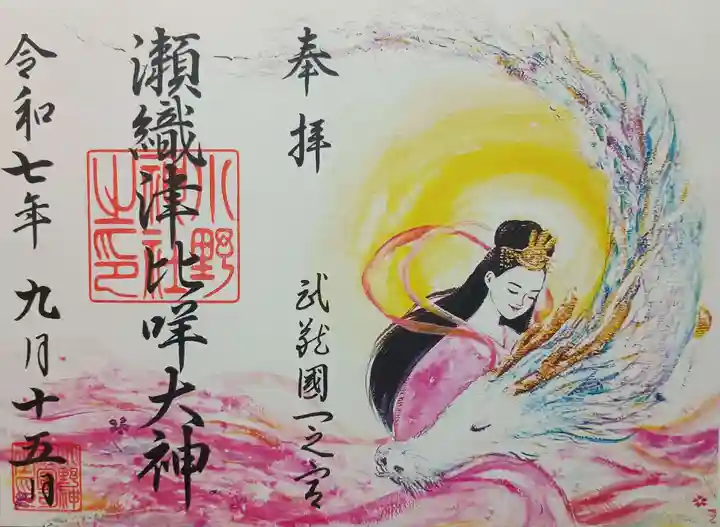 奉拝
武蔵國一之宮
瀬織津比咩大神
小野
神社
之印
令和七年九月十五日